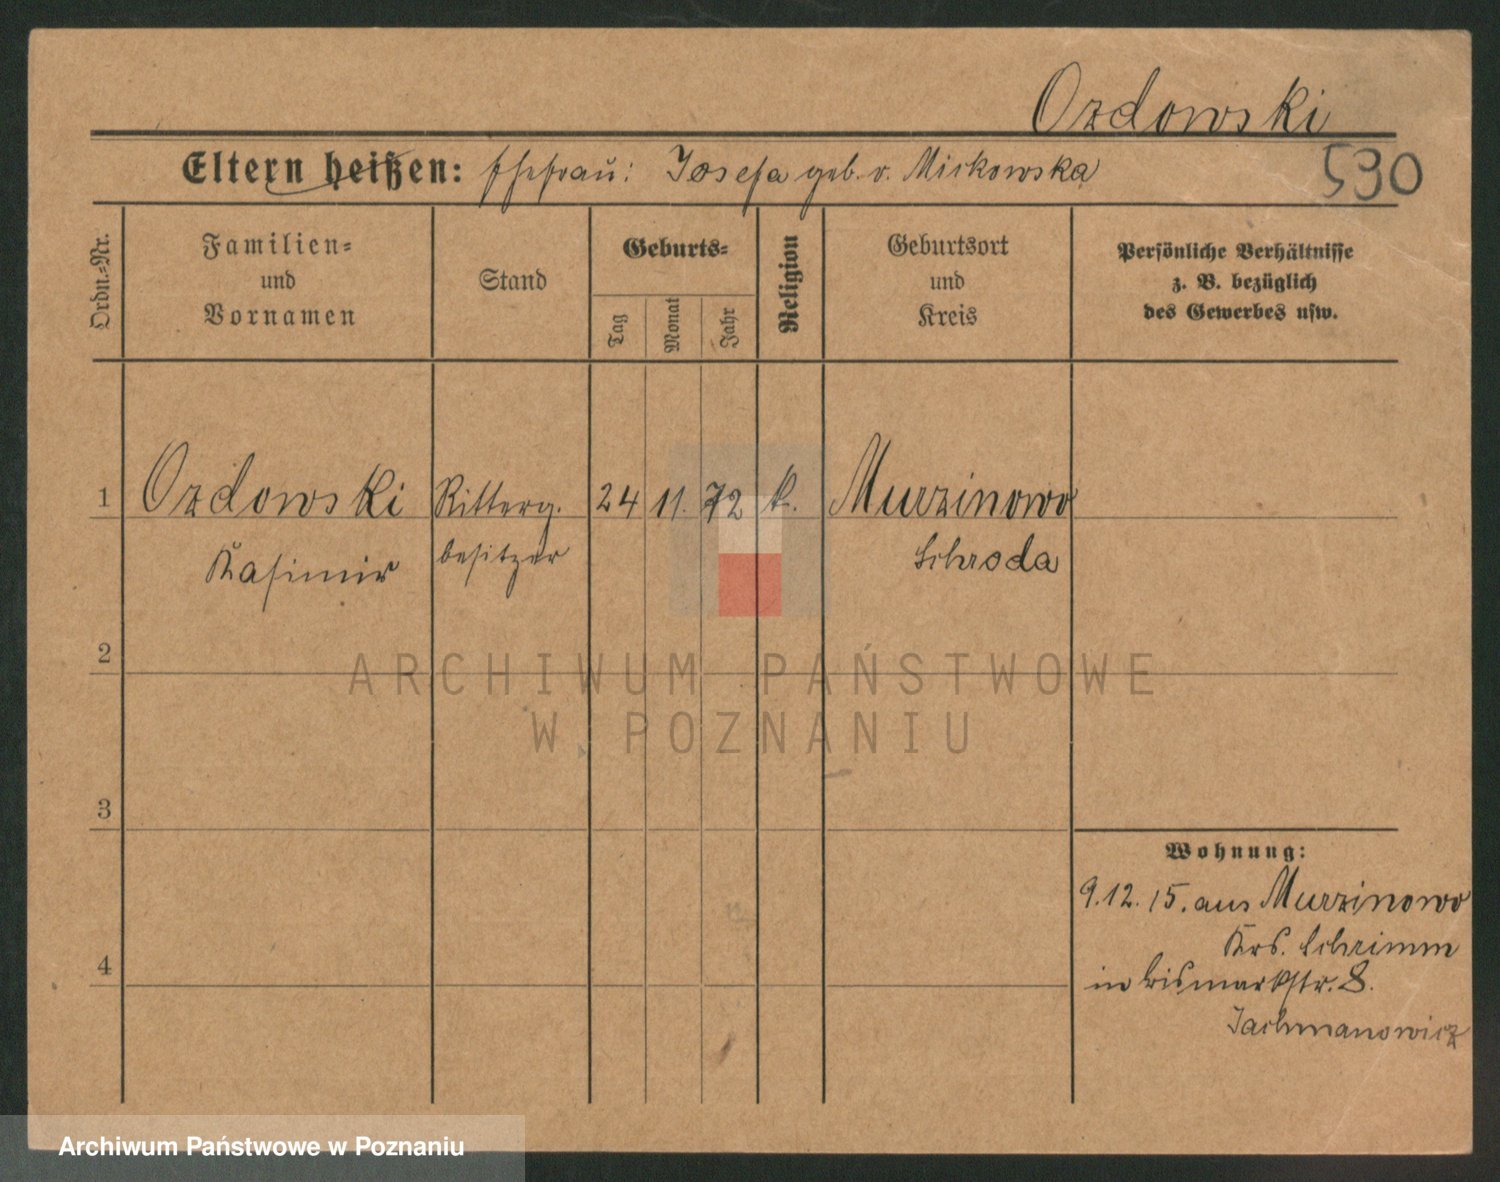 Ozdowski
Eltern heißen: Ehefrau: Josefa geb. v. Mickowska
530
Ordn.-Nr.
Familien-
und
Vornamen
Stand
Geburts-
Tag
Monat
Jahr
Religion
Geburtsort
und
Kreis
Persönliche Verhältnisse
z. B. bezüglich
des Gewerbes usw.
1 Ozdowski Ritterg. 24 11. 72 k. Murzinowo
Kasimir besitzer Schroda
2
ARCHIWUM PAŃSTWOWE
W POZNANIU
3
Wohnung:
9.12. 15. aus Murzinowo
Krs. Schrimm
4
in Bismarkstr. 8.
Jachmanowicz
Archiwum Państwowe w Poznaniu